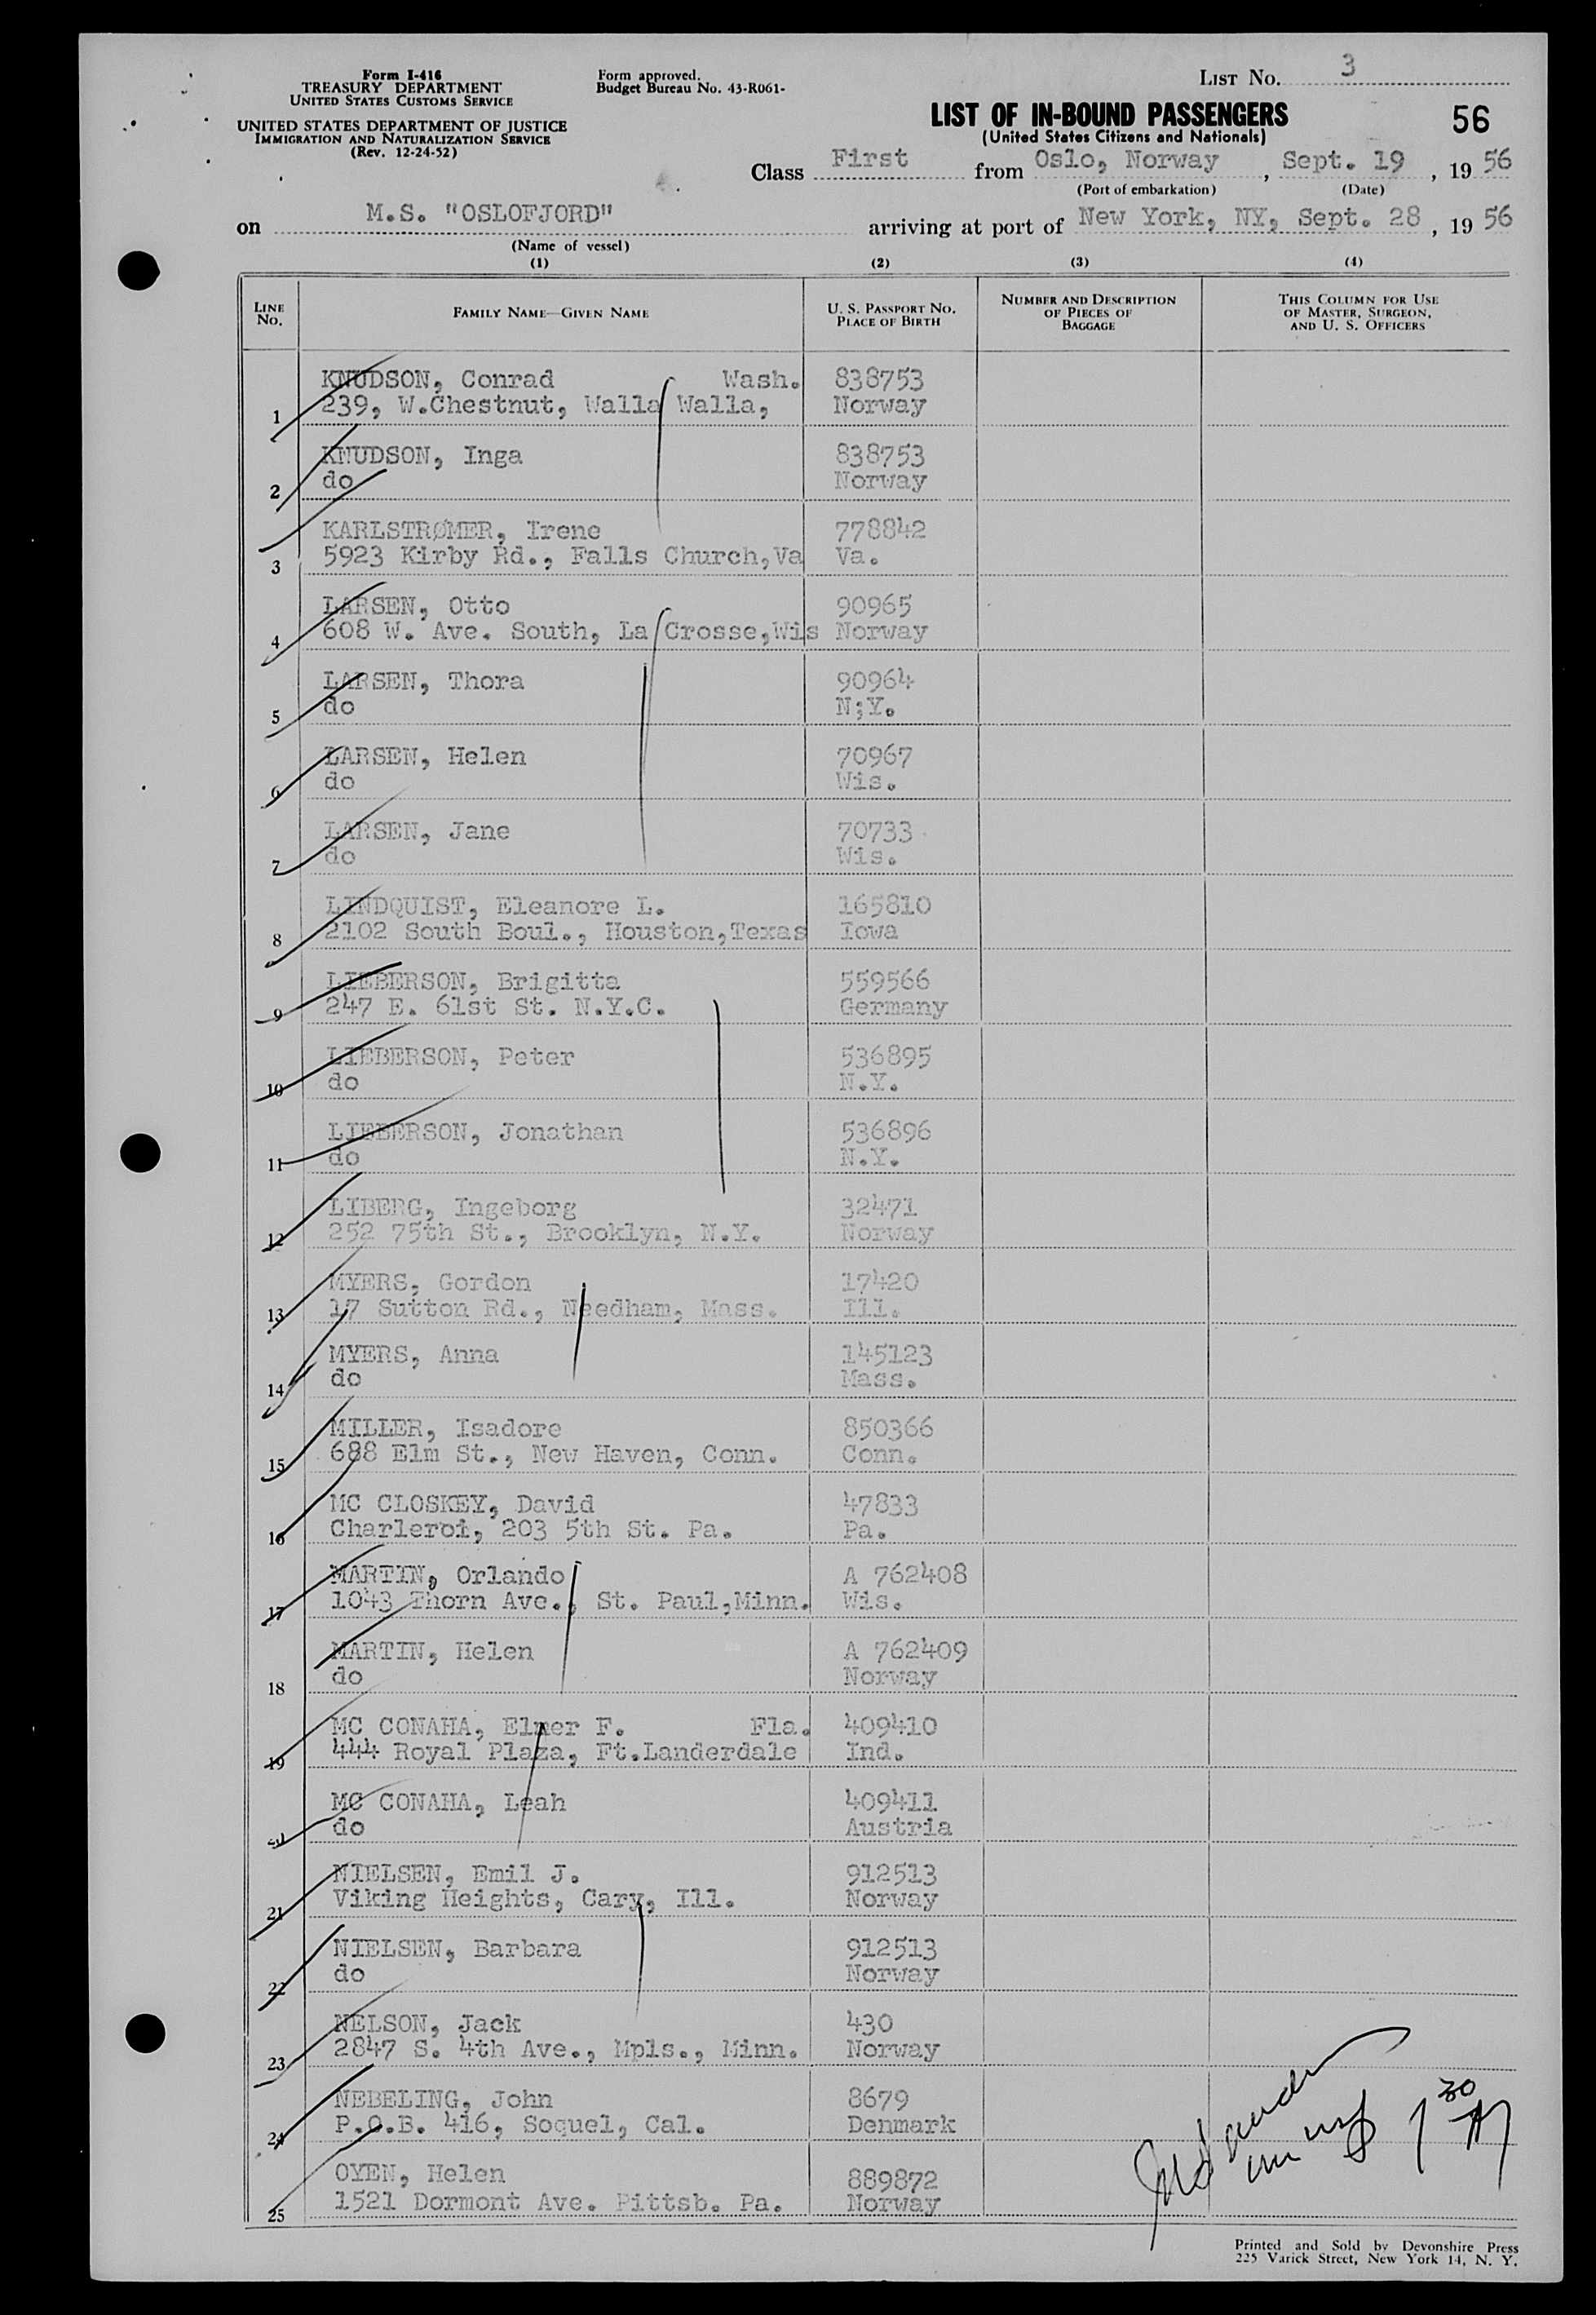 Form I-416
TREASURY DEPARTMENT
UNITED STATES CUSTOMS SERVICE
UNITED STATES DEPARTMENT OF JUSTICE
IMMIGRATION AND NATURALIZATION SERVICE
(Rev. 12-24-52)
Form approved.
Budget Bureau No. 43-R061-
LIST No. 3
LIST OF IN-BOUND PASSENGERS
(United States Citizens and Nationals)
56
Class First from Oslo, Norway, Sept. 19, 19 56
(Port of embarkation) (Date)
on M.S. "OSLOFJORD" arriving at port of New York, NY, Sept. 28, 19 56
(Name of vessel)
(1) (2) (3) (4)
LINE No. FAMILY NAME—GIVEN NAME U. S. PASSPORT NO. PLACE OF BIRTH NUMBER AND DESCRIPTION OF PIECES OF BAGGAGE THIS COLUMN FOR USE OF MASTER, SURGEON, AND U. S. OFFICERS
KNUDSON, Conrad Wash. 838753
1 239, W.Chestnut, Walla Walla, Norway
KNUDSON, Inga 838753
2 do Norway
KARLSTRØMER, Irene 778842
3 5923 Kirby Rd., Falls Church,Va Va.
LARSEN, Otto 90965
4 608 W. Ave. South, La Crosse,Wis Norway
LARSEN, Thora 90964
5 do N;Y.
LARSEN, Helen 70967
6 do Wis.
LARSEN, Jane 70733
7 do Wis.
LINDQUIST, Eleanore L. 165810
8 2102 South Boul., Houston,Texas Iowa
LIEBERSON, Brigitta 559566
9 247 E. 61st St. N.Y.C. Germany
LIEBERSON, Peter 536895
10 do N.Y.
LIEBERSON, Jonathan 536896
11 do N.Y.
LIBERG, Ingeborg 32471
12 252 75th St., Brooklyn, N.Y. Norway
MYERS, Gordon 17420
13 17 Sutton Rd., Needham, Mass. Ill.
MYERS, Anna 145123
14 do Mass.
MILLER, Isadore 850366
15 688 Elm St., New Haven, Conn. Conn.
MC CLOSKEY, David 47833
16 Charleroi, 203 5th St. Pa. Pa.
MARTIN, Orlando A 762408
17 1043 Thorn Ave., St. Paul,Minn. Wis.
MARTIN, Helen A 762409
18 do Norway
MC CONAHA, Elmer F. Fla. 409410
19 444 Royal Plaza, Ft.Landerdale Ind.
MC CONAHA, Leah 409411
20 do Austria
NIELSEN, Emil J. 912513
21 Viking Heights, Cary, Ill. Norway
NIELSEN, Barbara 912513
22 do Norway
NELSON, Jack 430
23 2847 S. 4th Ave., Mpls., Minn. Norway
NEBELING, John 8679
24 P.O.B. 416, Soquel, Cal. Denmark
OYEN, Helen 889872
25 1521 Dormont Ave. Pittsb. Pa. Norway
Printed and Sold by Devonshire Press
225 Varick Street, New York 14, N. Y.